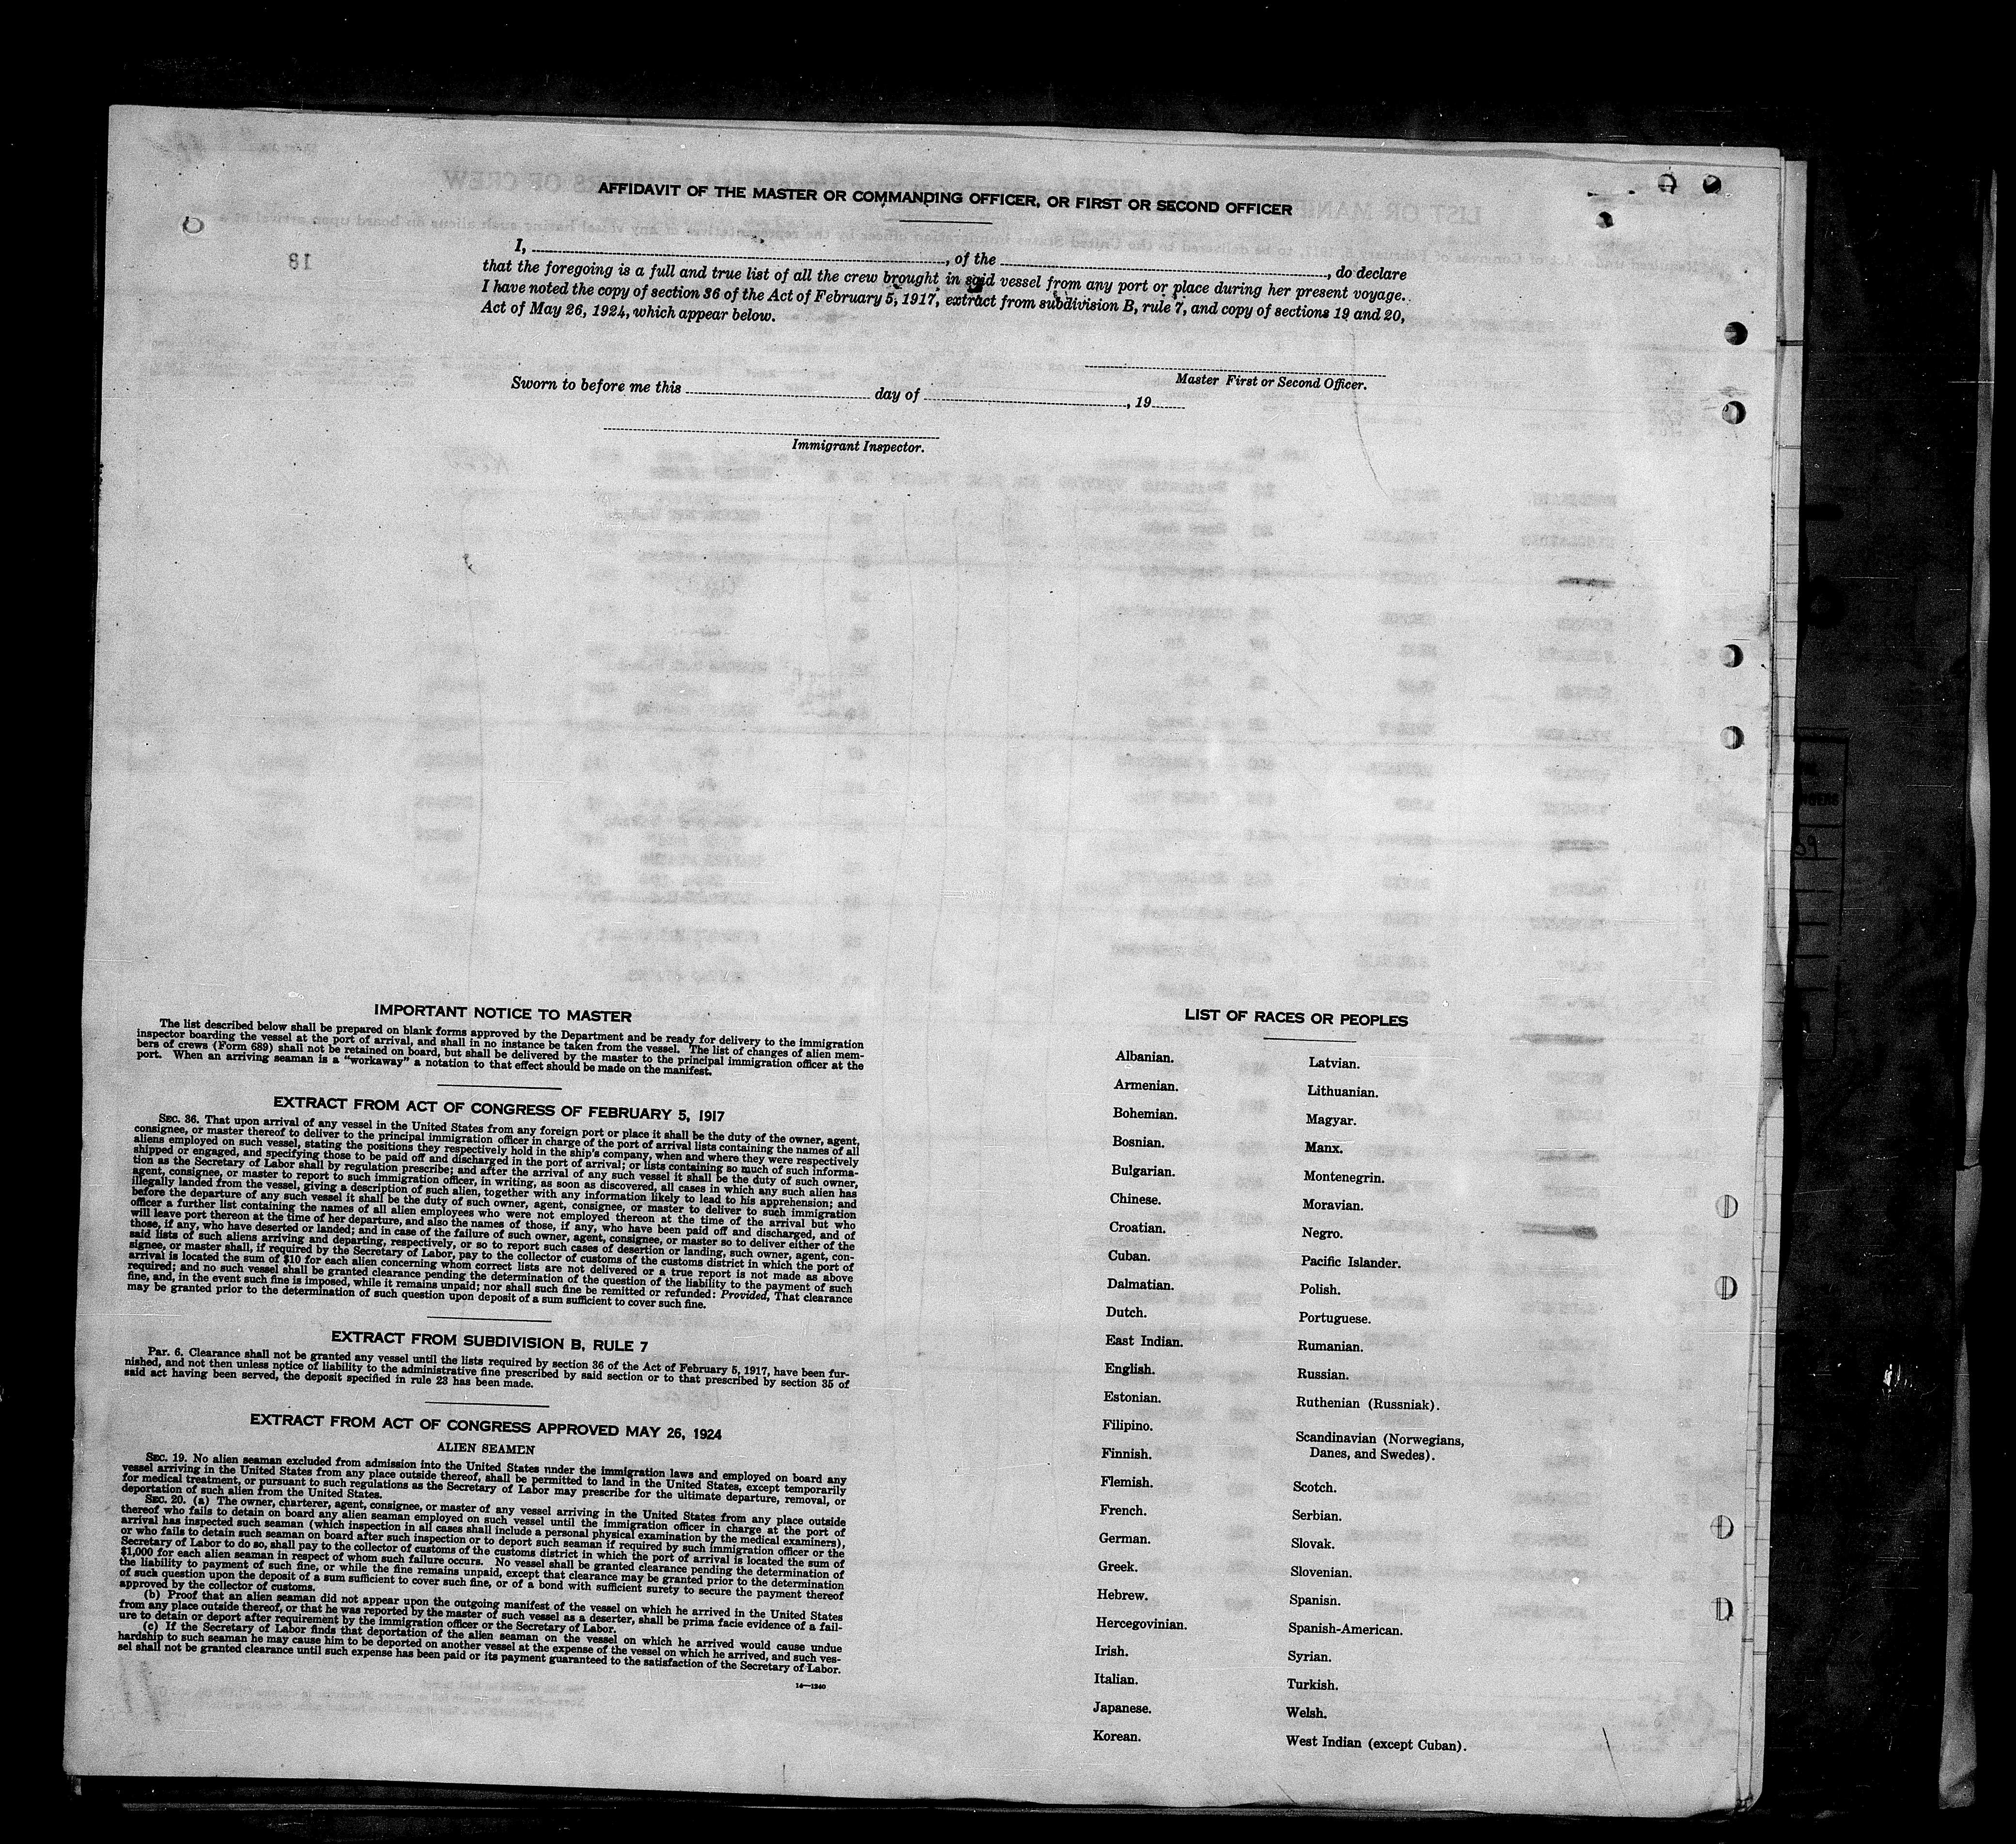 AFFIDAVIT OF THE MASTER OR COMMANDING OFFICER, OR FIRST OR SECOND OFFICER
I, ..., of the ..., do declare
that the foregoing is a full and true list of all the crew brought in said vessel from any port or place during her present voyage.
I have noted the copy of section 36 of the Act of February 5, 1917, extract from subdivision B, rule 7, and copy of sections 19 and 20,
Act of May 26, 1924, which appear below.
Master First or Second Officer.
Sworn to before me this ... day of ..., 19...
Immigrant Inspector.
18
IMPORTANT NOTICE TO MASTER
The list described below shall be prepared on blank forms approved by the Department and be ready for delivery to the immigration
inspector boarding the vessel at the port of arrival, and shall in no instance be taken from the vessel. The list of changes of alien mem-
bers of crews (Form 689) shall not be retained on board, but shall be delivered by the master to the principal immigration officer at the
port. When an arriving seaman is a "workaway" a notation to that effect should be made on the manifest.
EXTRACT FROM ACT OF CONGRESS OF FEBRUARY 5, 1917
SEC. 36. That upon arrival of any vessel in the United States from any foreign port or place it shall be the duty of the owner, agent,
consignee, or master thereof to deliver to the principal immigration officer in charge of the port of arrival lists containing the names of all
aliens employed on such vessel, stating the positions they respectively hold in the ship's company, when and where they were respectively
shipped or engaged, and specifying those to be paid off and discharged in the port of arrival; or lists containing so much of such informa-
tion as the Secretary of Labor shall by regulation prescribe; and after the arrival of any such vessel it shall be the duty of such owner,
agent, consignee, or master to report to such immigration officer, in writing, as soon as discovered, all cases in which any such alien has
illegally landed from the vessel, giving a description of such alien, together with any information likely to lead to his apprehension; and
before the departure of any such vessel it shall be the duty of such owner, agent, consignee, or master to deliver to such immigration
officer a further list containing the names of all alien employees who were not employed thereon at the time of the arrival but who
will leave port thereon at the time of her departure, and also the names of those, if any, who have been paid off and discharged, and of
those, if any, who have deserted or landed; and in case of the failure of such owner, agent, consignee, or master so to deliver either of the
said lists of such aliens arriving and departing, respectively, or so to report such cases of desertion or landing, such owner, agent, con-
signee, or master shall, if required by the Secretary of Labor, pay to the collector of customs of the customs district in which the port of
arrival is located the sum of $10 for each alien concerning whom correct lists are not delivered or a true report is not made as above
required; and no such vessel shall be granted clearance pending the determination of the question of the liability to the payment of such
fine, and, in the event such fine is imposed, while it remains unpaid; nor shall such fine be remitted or refunded: Provided, That clearance
may be granted prior to the determination of such question upon deposit of a sum sufficient to cover such fine.
EXTRACT FROM SUBDIVISION B, RULE 7
Par. 6. Clearance shall not be granted any vessel until the lists required by section 36 of the Act of February 5, 1917, have been fur-
nished, and not then unless notice of liability to the administrative fine prescribed by said section or to that prescribed by section 35 of
said act having been served, the deposit specified in rule 23 has been made.
EXTRACT FROM ACT OF CONGRESS APPROVED MAY 26, 1924
ALIEN SEAMEN
SEC. 19. No alien seaman excluded from admission into the United States under the immigration laws and employed on board any
vessel arriving in the United States from any place outside thereof, shall be permitted to land in the United States, except temporarily
for medical treatment, or pursuant to such regulations as the Secretary of Labor may prescribe for the ultimate departure, removal, or
deportation of such alien from the United States.
SEC. 20. (a) The owner, charterer, agent, consignee, or master of any vessel arriving in the United States from any place outside
thereof who fails to detain on board any alien seaman employed on such vessel until the immigration officer in charge at the port of
arrival has inspected such seaman (which inspection in all cases shall include a personal physical examination by the medical examiners),
or who fails to detain such seaman on board after such inspection or to deport such seaman if required by such immigration officer or the
Secretary of Labor to do so, shall pay to the collector of customs of the customs district in which the port of arrival is located the sum of
$1,000 for each alien seaman in respect of whom such failure occurs. No vessel shall be granted clearance pending the determination of
the liability to payment of such fine, or while the fine remains unpaid, except that clearance may be granted prior to the determination
of such question upon the deposit of a sum sufficient to cover such fine, or of a bond with sufficient surety to secure the payment thereof
approved by the collector of customs.
(b) Proof that an alien seaman did not appear upon the outgoing manifest of the vessel on which he arrived in the United States
from any place outside thereof, or that he was reported by the master of such vessel as a deserter, shall be prima facie evidence of a fail-
ure to detain or deport after requirement by the immigration officer or the Secretary of Labor.
(c) If the Secretary of Labor finds that deportation of the alien seaman on the vessel on which he arrived would cause undue
hardship to such seaman he may cause him to be deported on another vessel at the expense of the vessel on which he arrived, and such ves-
sel shall not be granted clearance until such expense has been paid or its payment guaranteed to the satisfaction of the Secretary of Labor.
14—1240
LIST OF RACES OR PEOPLES
Albanian.
Armenian.
Bohemian.
Bosnian.
Bulgarian.
Chinese.
Croatian.
Cuban.
Dalmatian.
Dutch.
East Indian.
English.
Estonian.
Filipino.
Finnish.
Flemish.
French.
German.
Greek.
Hebrew.
Hercegovinian.
Irish.
Italian.
Japanese.
Korean.
Latvian.
Lithuanian.
Magyar.
Manx.
Montenegrin.
Moravian.
Negro.
Pacific Islander.
Polish.
Portuguese.
Rumanian.
Russian.
Ruthenian (Russniak).
Scandinavian (Norwegians,
Danes, and Swedes).
Scotch.
Serbian.
Slovak.
Slovenian.
Spanish.
Spanish-American.
Syrian.
Turkish.
Welsh.
West Indian (except Cuban).